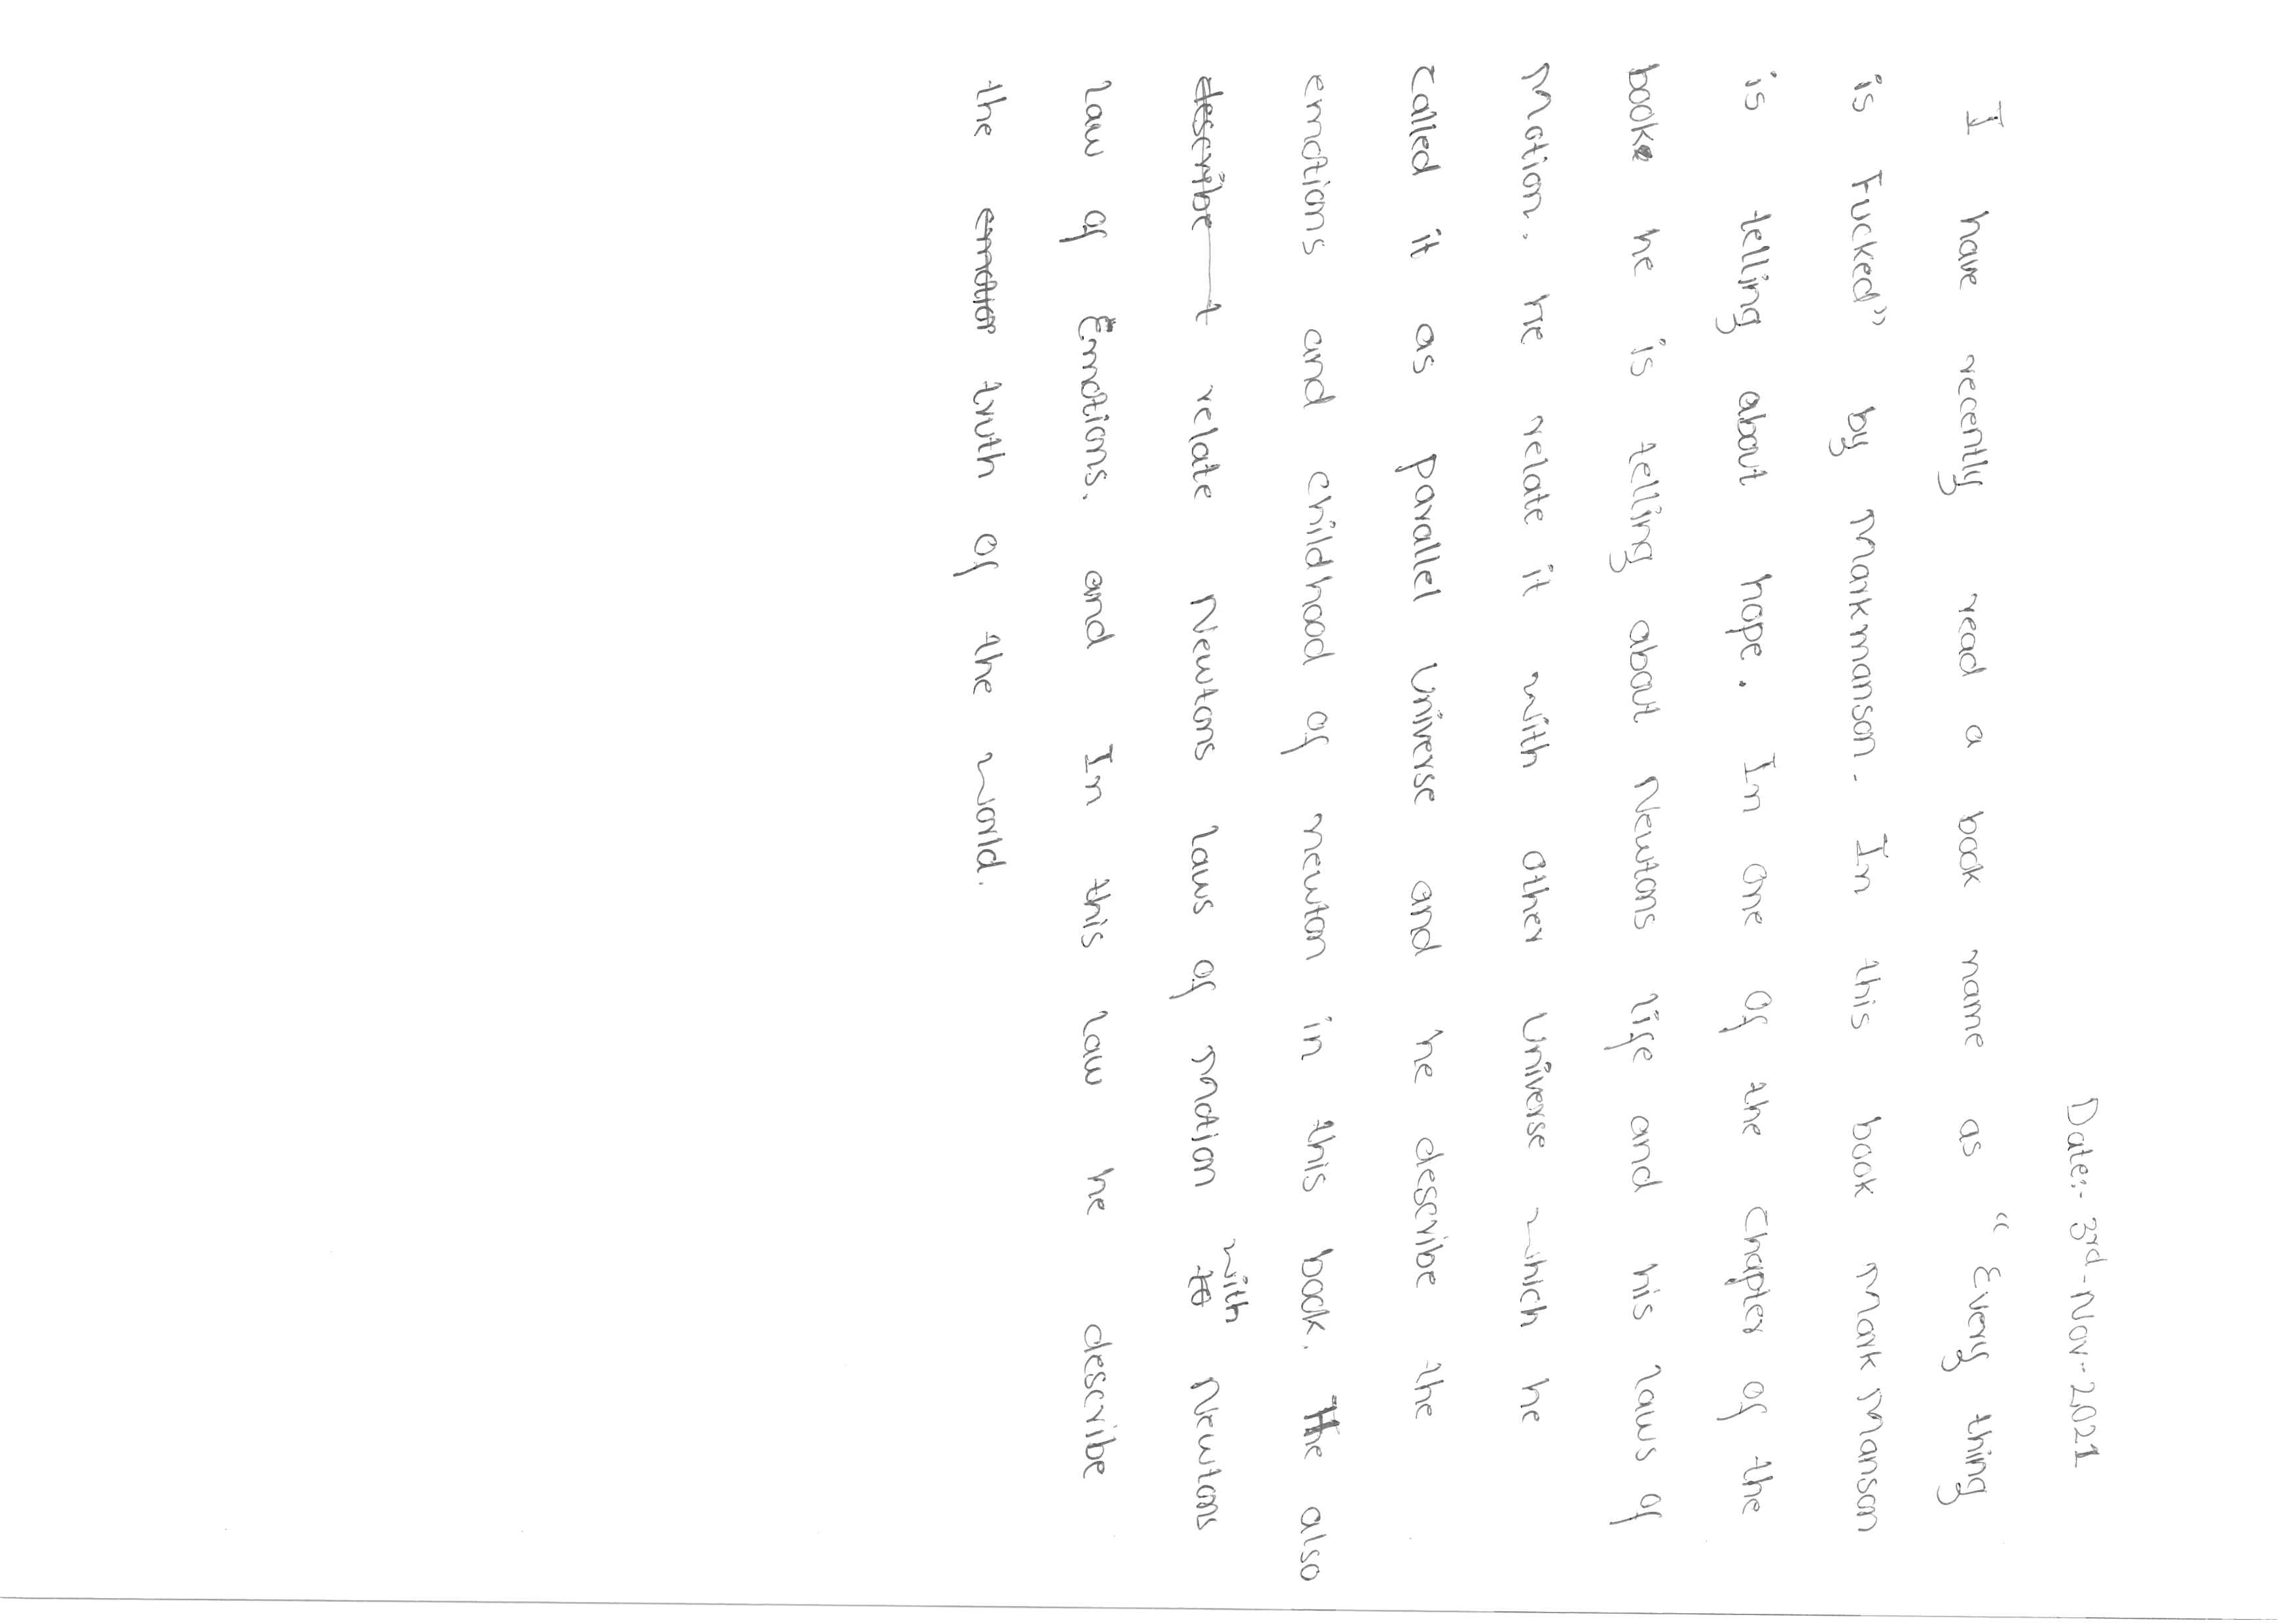 Date:- 3rd-Nov-2021
I have recently read a book name as "Every thing
is Fucked" by Markmanson. In this book Mark Manson
is telling about hope. In one of the Chapter of the
book he is telling about Newtons life and his laws of
Motion. he relate it with other Universe which he
called it as parallel Universe and he describe the
emotions and childhood of newton in this book. He also
describe t relate Newtons laws of Motion with to Newtons
law of Emotions. and In this law he describe
the emotion truth of the world.